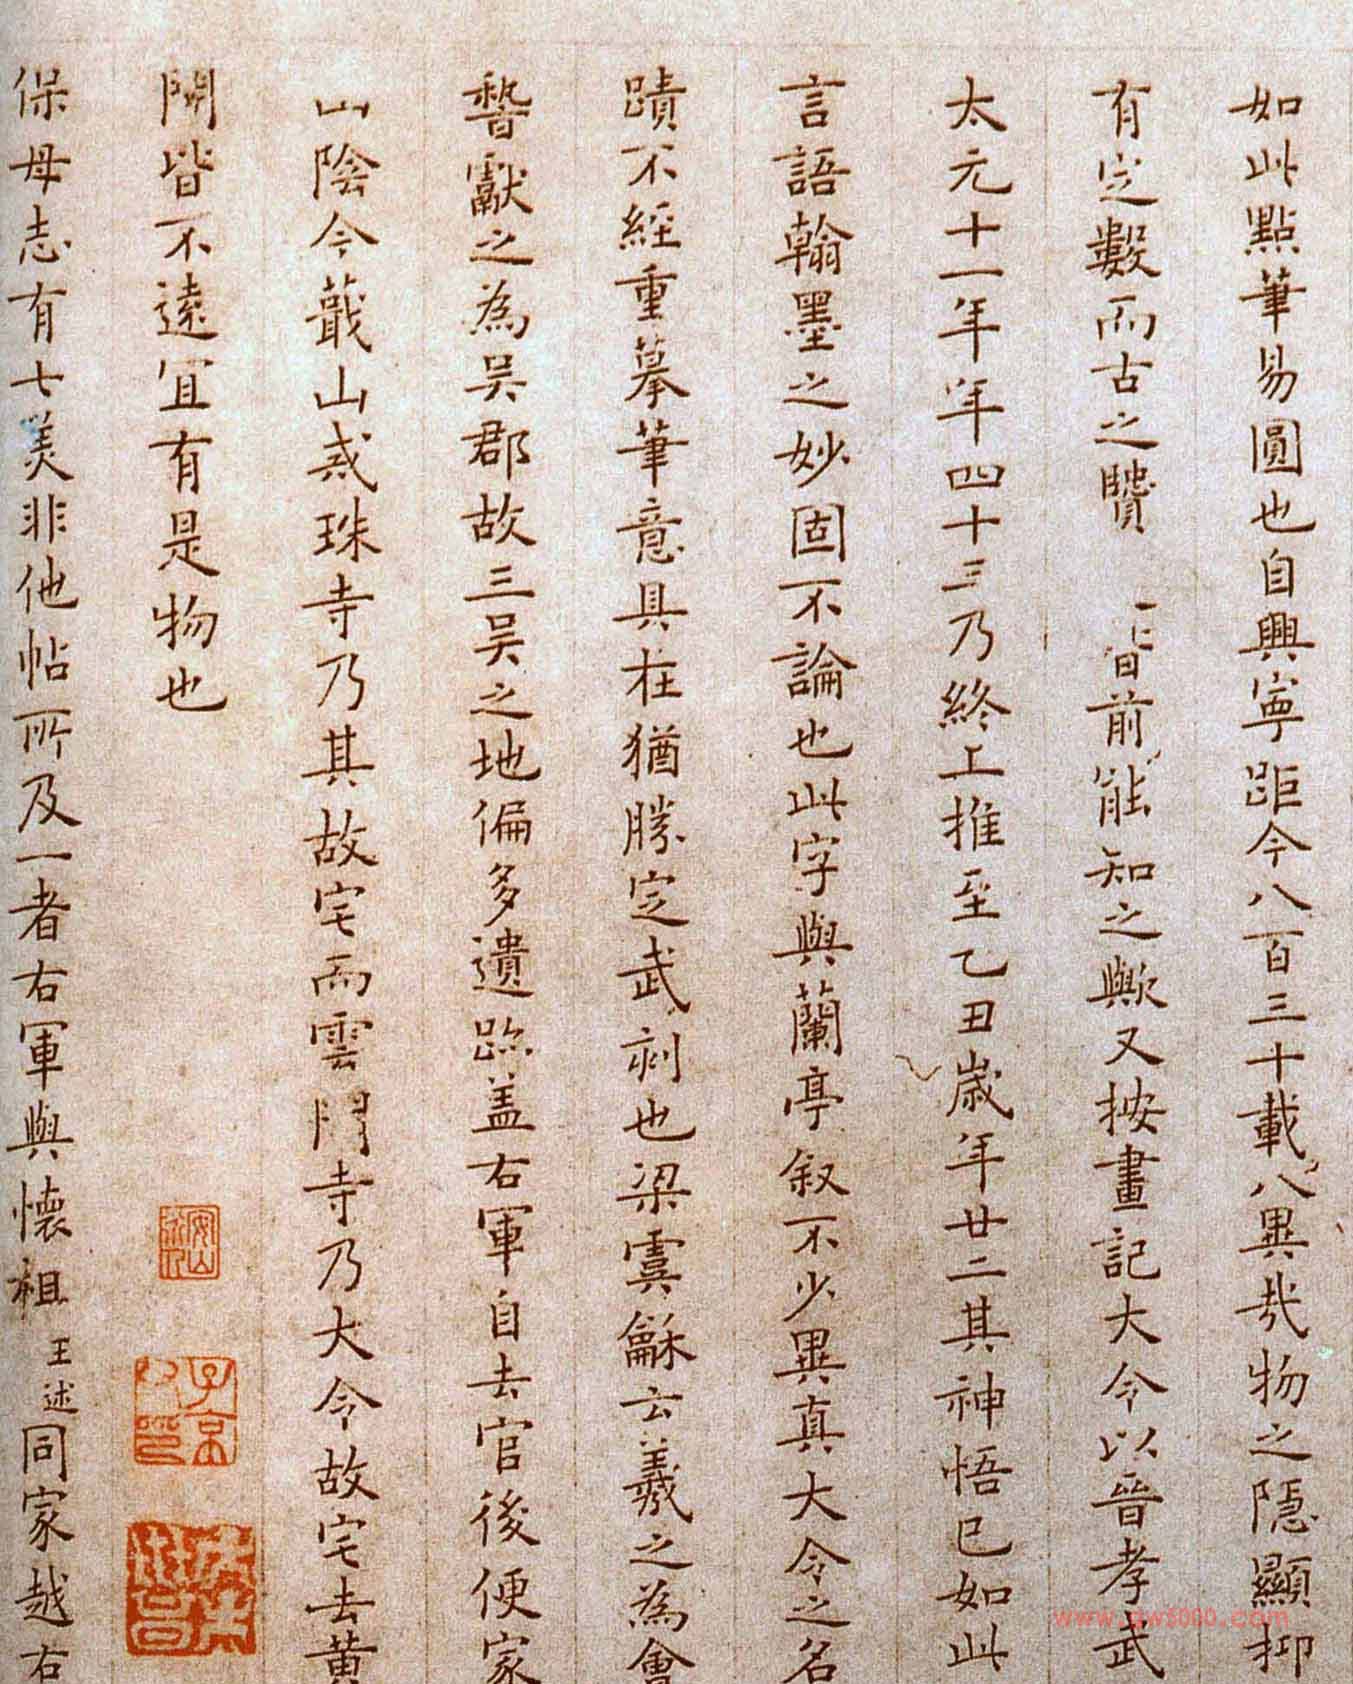 如此點筆易圓也自興寧距今八百三十載八異哉物之隱顯抑
有定數而古之賢一二百前能知之歟又按畫記大令以晉孝武
太元十一年年四十三乃終上推至乙丑歲年廿二其神悟已如此
言語翰墨之妙固不論也此字與蘭亭叙不少異真大令之名
蹟不經重摹筆意具在猶勝定武刻也梁虞龢云羲之為會
暬獻之為吳郡故三吳之地偏多遺跡盖右軍自去官後便家
山陰今蕺山戒珠寺乃其故宅而雲門寺乃大令故宅去黄
閍皆不遠宜有是物也
保母志有七美非他帖所及一者右軍與懷祖王述同家越右
子京
www.gw5000.com